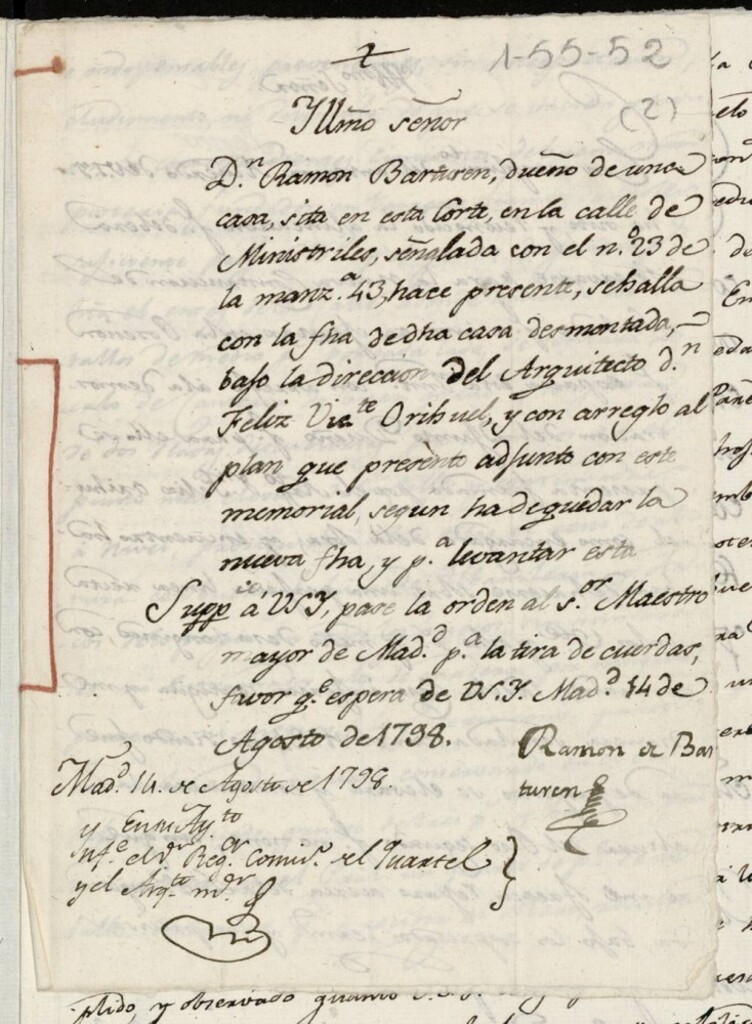 1-55-52
(2)
Yllmo señor
D.n Ramon Barturen, dueño de una
casa, sita en esta Corte, en la calle de
Ministriles, señalada con el n.o 23 de
la manz.a 43, hace presente, sehalla
con la fha de dha casa desmontada,
baso la direccion del Arquitecto d.n
Feliz Vic.te Orihuel, y con arreglo al
plan que presento adjunto con este
memorial, segun ha de quedar la
nueva fha, y p.a levantar esta
Supp á VSY, pase la orden al s.or Maestro
mayor de Mad.d p.a la tira de cuerdas,
favor q.e espera de VS.Y. Mad.d 14 de
Agosto de 1798.
Ramon de Bar
turen
Mad.d 14. de Agosto de 1798.
Ynf.e el s.or Reg.or Comis.o del Quartel
y el Arq.to m.or
plido, y observado quanto